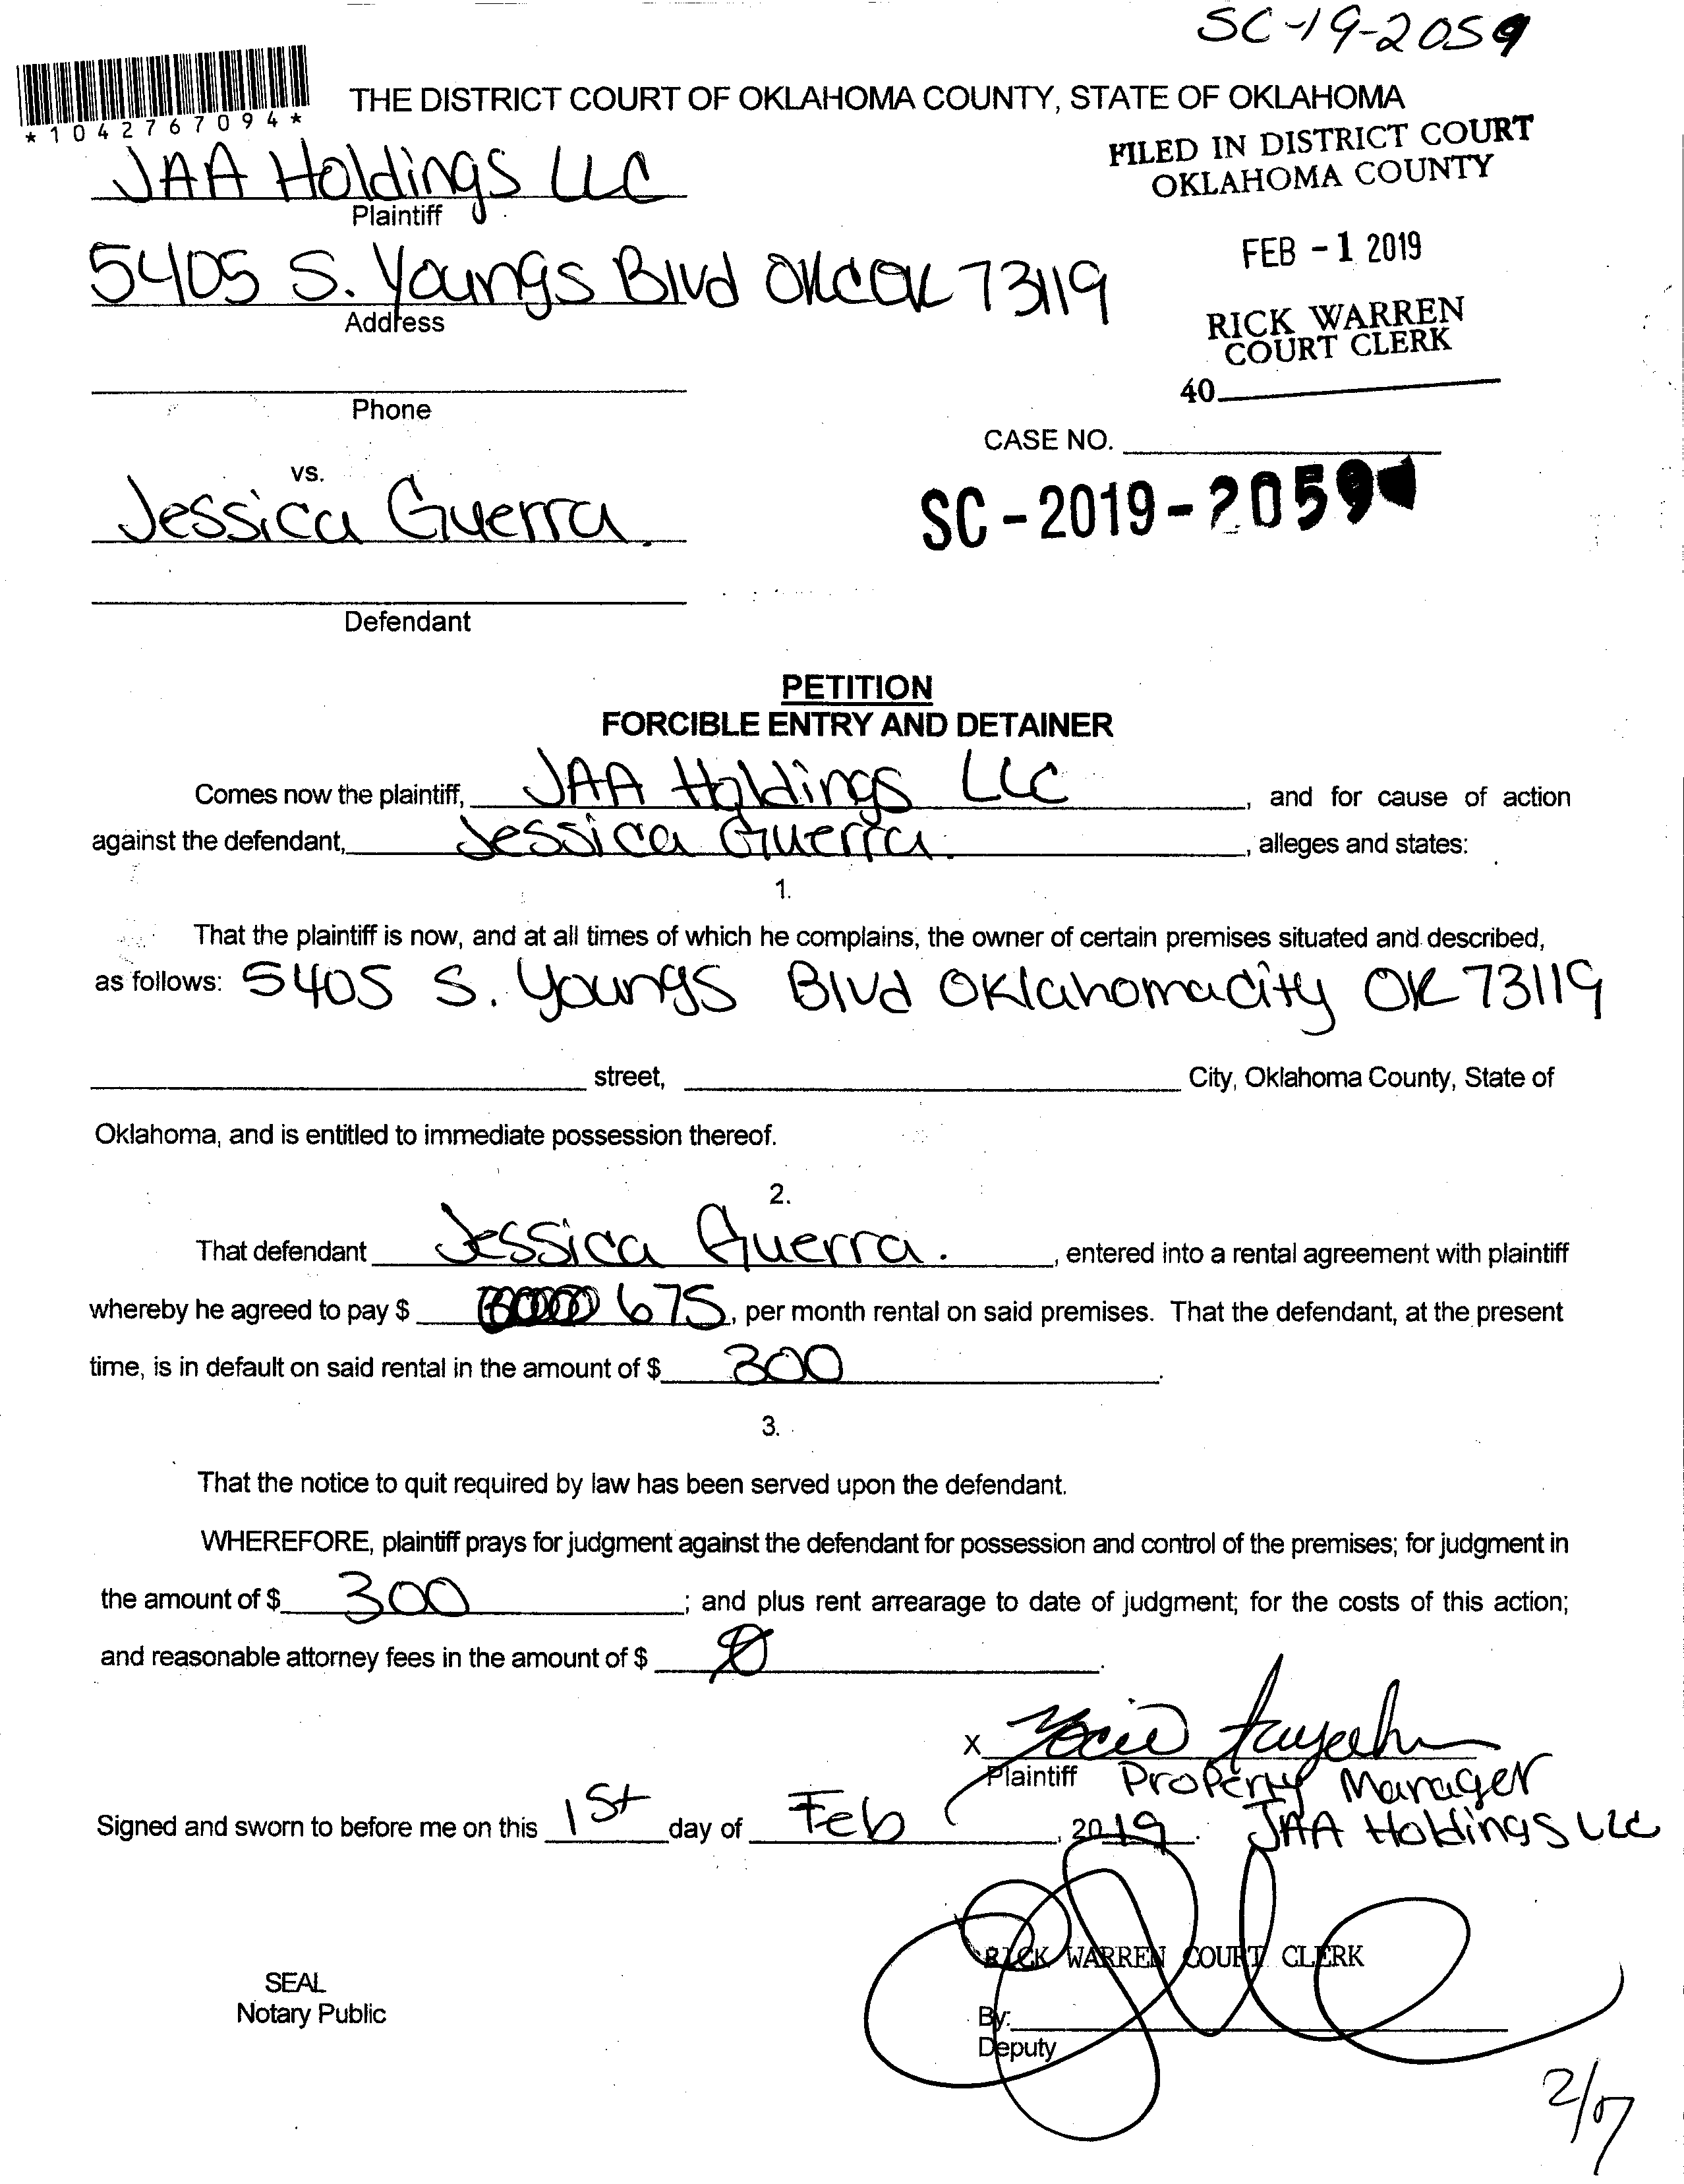 SC-19-2059
*1042767094*
THE DISTRICT COURT OF OKLAHOMA COUNTY, STATE OF OKLAHOMA
FILED IN DISTRICT COURT
OKLAHOMA COUNTY
JAA Holdings LLC
Plaintiff
FEB -1 2019
5405 S. Youngs Blvd OKC OK 73119
Address
RICK WARREN
COURT CLERK
40
Phone
CASE NO.
vs.
SC-2019-2059
Jessica Guerra.
Defendant
PETITION
FORCIBLE ENTRY AND DETAINER
Comes now the plaintiff, JAA Holdings LLC, and for cause of action
against the defendant, Jessica Guerra., alleges and states:
1.
That the plaintiff is now, and at all times of which he complains, the owner of certain premises situated and described,
as follows: 5405 S. Youngs Blvd Oklahoma city OK 73119
street, City, Oklahoma County, State of
Oklahoma, and is entitled to immediate possession thereof.
2.
That defendant Jessica Guerra., entered into a rental agreement with plaintiff
whereby he agreed to pay $ 675, per month rental on said premises. That the defendant, at the present
time, is in default on said rental in the amount of $ 300.
3.
That the notice to quit required by law has been served upon the defendant.
WHEREFORE, plaintiff prays for judgment against the defendant for possession and control of the premises; for judgment in
the amount of $ 300; and plus rent arrearage to date of judgment; for the costs of this action;
and reasonable attorney fees in the amount of $ 0.
X
Plaintiff Property Manager
Signed and sworn to before me on this 1st day of Feb, 2019. JAA Holdings LLC
RICK WARREN COURT CLERK
SEAL
Notary Public
By:
Deputy